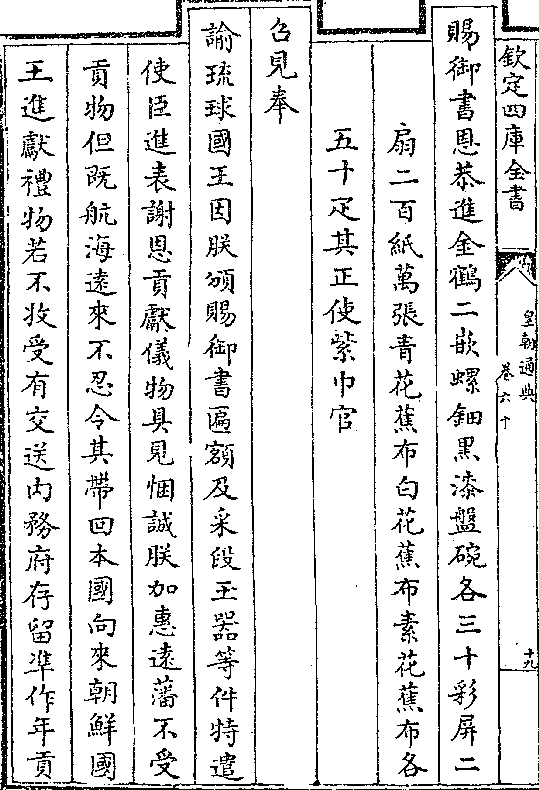 欽定四庫全書
皇朝通典
卷六十
十九
賜御書恩恭進金鶴二嵌螺鈿黑漆盤碗各三十彩屏二
扇二百紙萬張青花蕉布白花蕉布素花蕉布各
五十疋其正使紫巾官
召見奉
諭琉球國王因朕頒賜御書匾額及采段玉器等件特遣
使臣進表謝恩貢獻儀物具見悃誠朕加惠遠藩不受
貢物但既航海遠來不忍令其帶回本國向來朝鮮國
王進獻禮物若不收受有交送内務府存留准作年貢